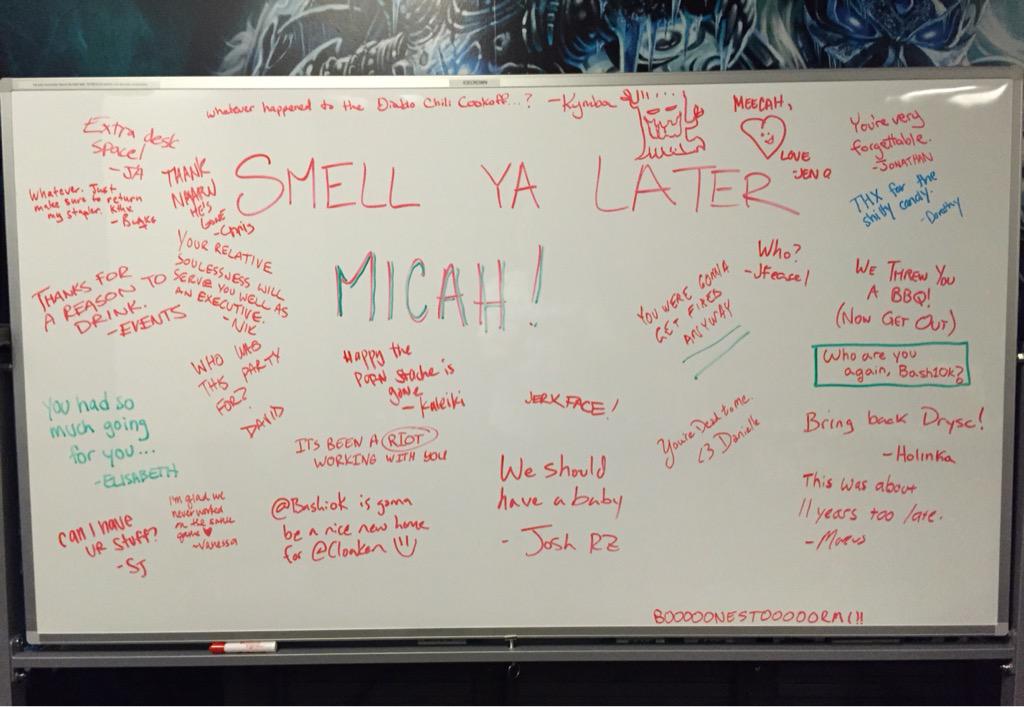 whatever happened to the Diablo Chili Cookoff...? -Kymba
Extra desk
space!
-JA
MEECAH,
LOVE
-JEN Q
You're very
forgettable.
-JONATHAN
THANK
NAARN
He's
Gone
-Chris
Whatever. Just
make sure to return
my stapler. Kthx
SMELL YA LATER
MICAH!
THX for the
shitty candy.
-Dorothy
YOUR RELATIVE
SOULESSNESS WILL
SERVE YOU WELL AS
AN EXECUTIVE.
-NIK
THANKS FOR
A REASON TO
DRINK.
-EVENTS
Who?
-Jfease1
YOU WERE GONNA
GET FIRED
ANYWAY
WE THREW YOU
A BBQ!
(NOW GET OUT)
WHO WAS
THIS PARTY
FOR?
DAVID
Happy the
PORN Stache is
gone
-Kaleiki
Who are you
again, Bash10k?
You had so
much going
for you...
-ELISABETH
JERKFACE!
ITS BEEN A RIOT
WORKING WITH YOU
You're Dead to me.
<3 Danielle
Bring back Drysc!
-Holinka
We should
have a baby
- Josh RZ
can I have
UR STUFF?
-SJ
I'm glad we
never worked
on the same
game ♥
~Vanessa
@Bashiok is gonna
be a nice new home
for @Cloaken
This was about
11 years too late.
BOOOOONESTOOOOORM!!!